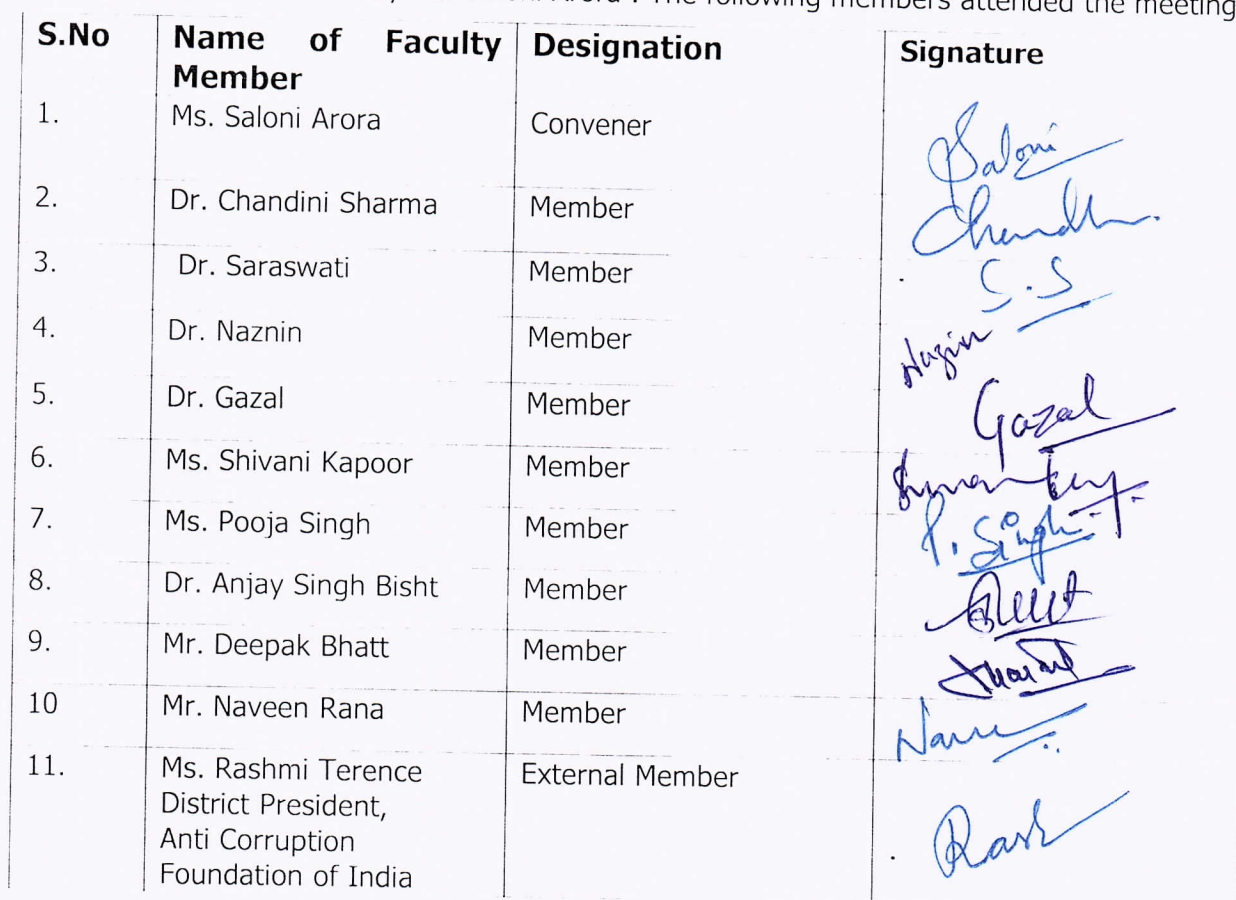 Arora . The following members attended the meeting
S.No Name of Faculty Member Designation Signature
1. Ms. Saloni Arora Convener Saloni
2. Dr. Chandini Sharma Member
3. Dr. Saraswati Member S.S
4. Dr. Naznin Member
5. Dr. Gazal Member Gazal
6. Ms. Shivani Kapoor Member
7. Ms. Pooja Singh Member P. Singh
8. Dr. Anjay Singh Bisht Member
9. Mr. Deepak Bhatt Member
10 Mr. Naveen Rana Member
11. Ms. Rashmi Terence External Member
District President,
Anti Corruption
Foundation of India